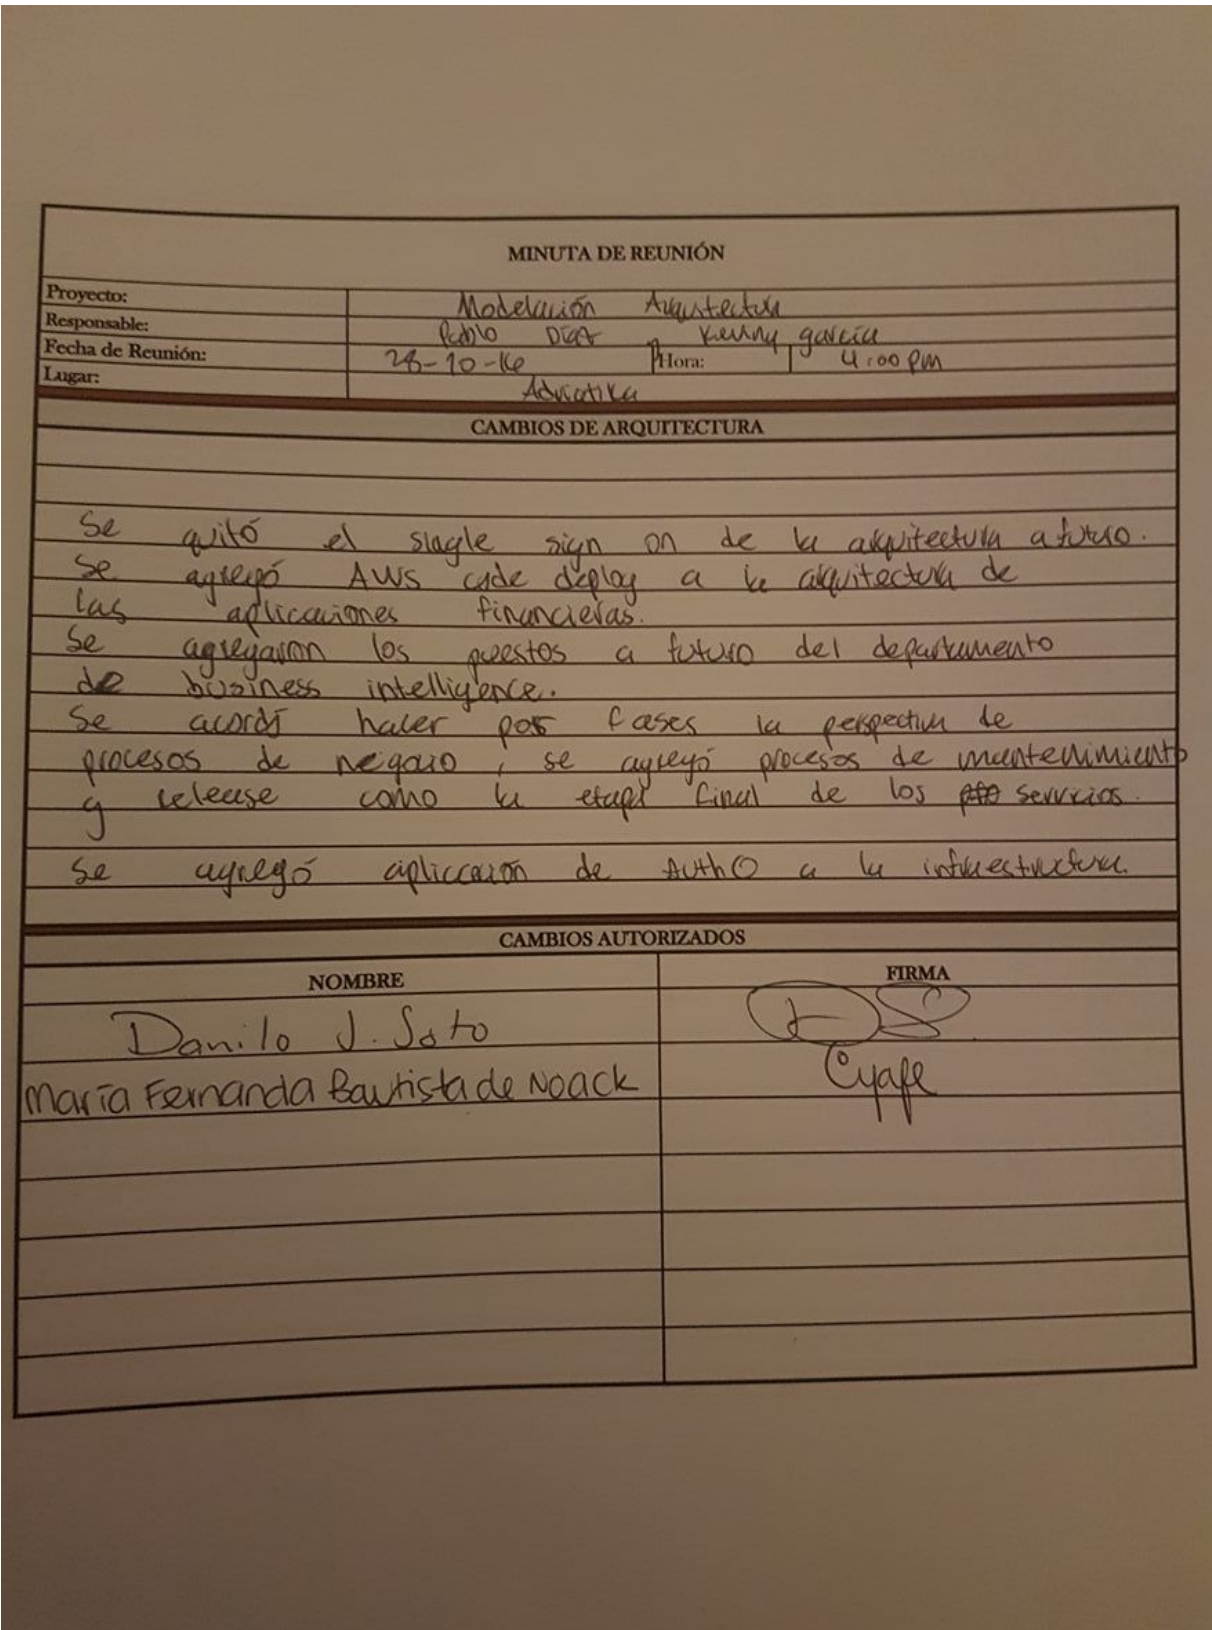 MINUTA DE REUNIÓN
Proyecto: Modelación Arquitectura
Responsable: Pablo Díaz Kenny garcía
Fecha de Reunión: 28-10-16 Hora: 4:00 pm
Lugar: Adriatika
CAMBIOS DE ARQUITECTURA
Se quitó el single sign on de la arquitectura a futuro.
Se agregó AWS code deploy a la arquitectura de
las aplicaciones financieras.
Se agregaron los puestos a futuro del departamento
de business intelligence.
Se acordó hacer por fases la perspectiva de
procesos de negocio, se agregó procesos de mantenimiento
y release como la etapa final de los servicios.
Se agregó aplicación de Auth0 a la infraestructura.
CAMBIOS AUTORIZADOS
NOMBRE FIRMA
Danilo J. Soto DS
María Fernanda Bautista de Noack